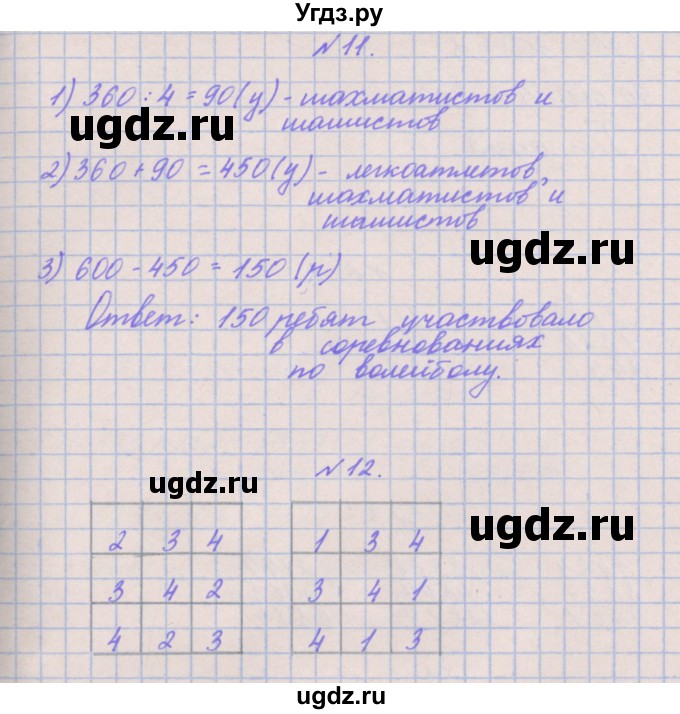 Угдз.ру
№ 11.
1) 360 : 4 = 90 (у) - шахматистов и
шашистов
ugdz.ru
2) 360 + 90 = 450 (у) - легкоатлетов,
шахматистов и
шашистов
ugdz.ru
3) 600 - 450 = 150 (р)
Ответ: 150 ребят участвовало
в соревнованиях
по волейболу.
№ 12.
ugdz.ru
ugdz.ru
2 3 4 1 3 4
3 4 2 3 4 1
4 2 3 4 1 3
ugdz.ru